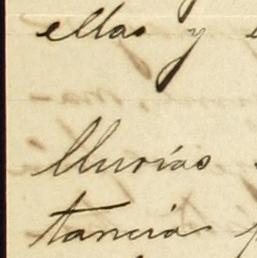 ellas y
lluvias
tancia